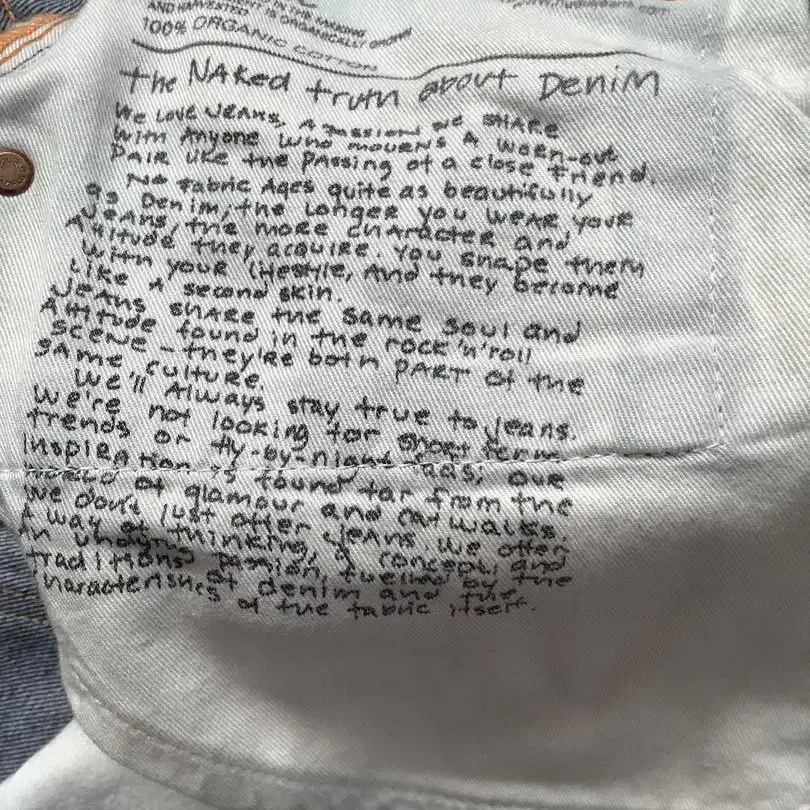 IN THE FARMING
AND HARVESTED
IS ORGANICALLY GROWN
100% ORGANIC COTTON
the NAKed truth about Denim
We Love Jeans, A passion we SHARe
with Anyone who mourns A worn-out
PAIR Like the passing of a close friend.
No fabric Ages quite as beautifully
as Denim, the Longer you weAR your
Jeans, the more character and
Attitude they acquire. You shape them
with your Lifestyle, And they become
Like A second skin.
Jeans share the same soul and
Attitude found in the rock'n'roll
scene - they're both PART of the
same culture.
We'll Always stay true to Jeans.
We're not looking for short term
trends or fly-by-night fads; our
Inspiration is found far from the
world of glamour and catwalks.
We don't Just offer Jeans. We offer
A way of thinking, A concept and
An undying passion, fuelled by the
traditions of denim and the
characteristics of the fabric itself.